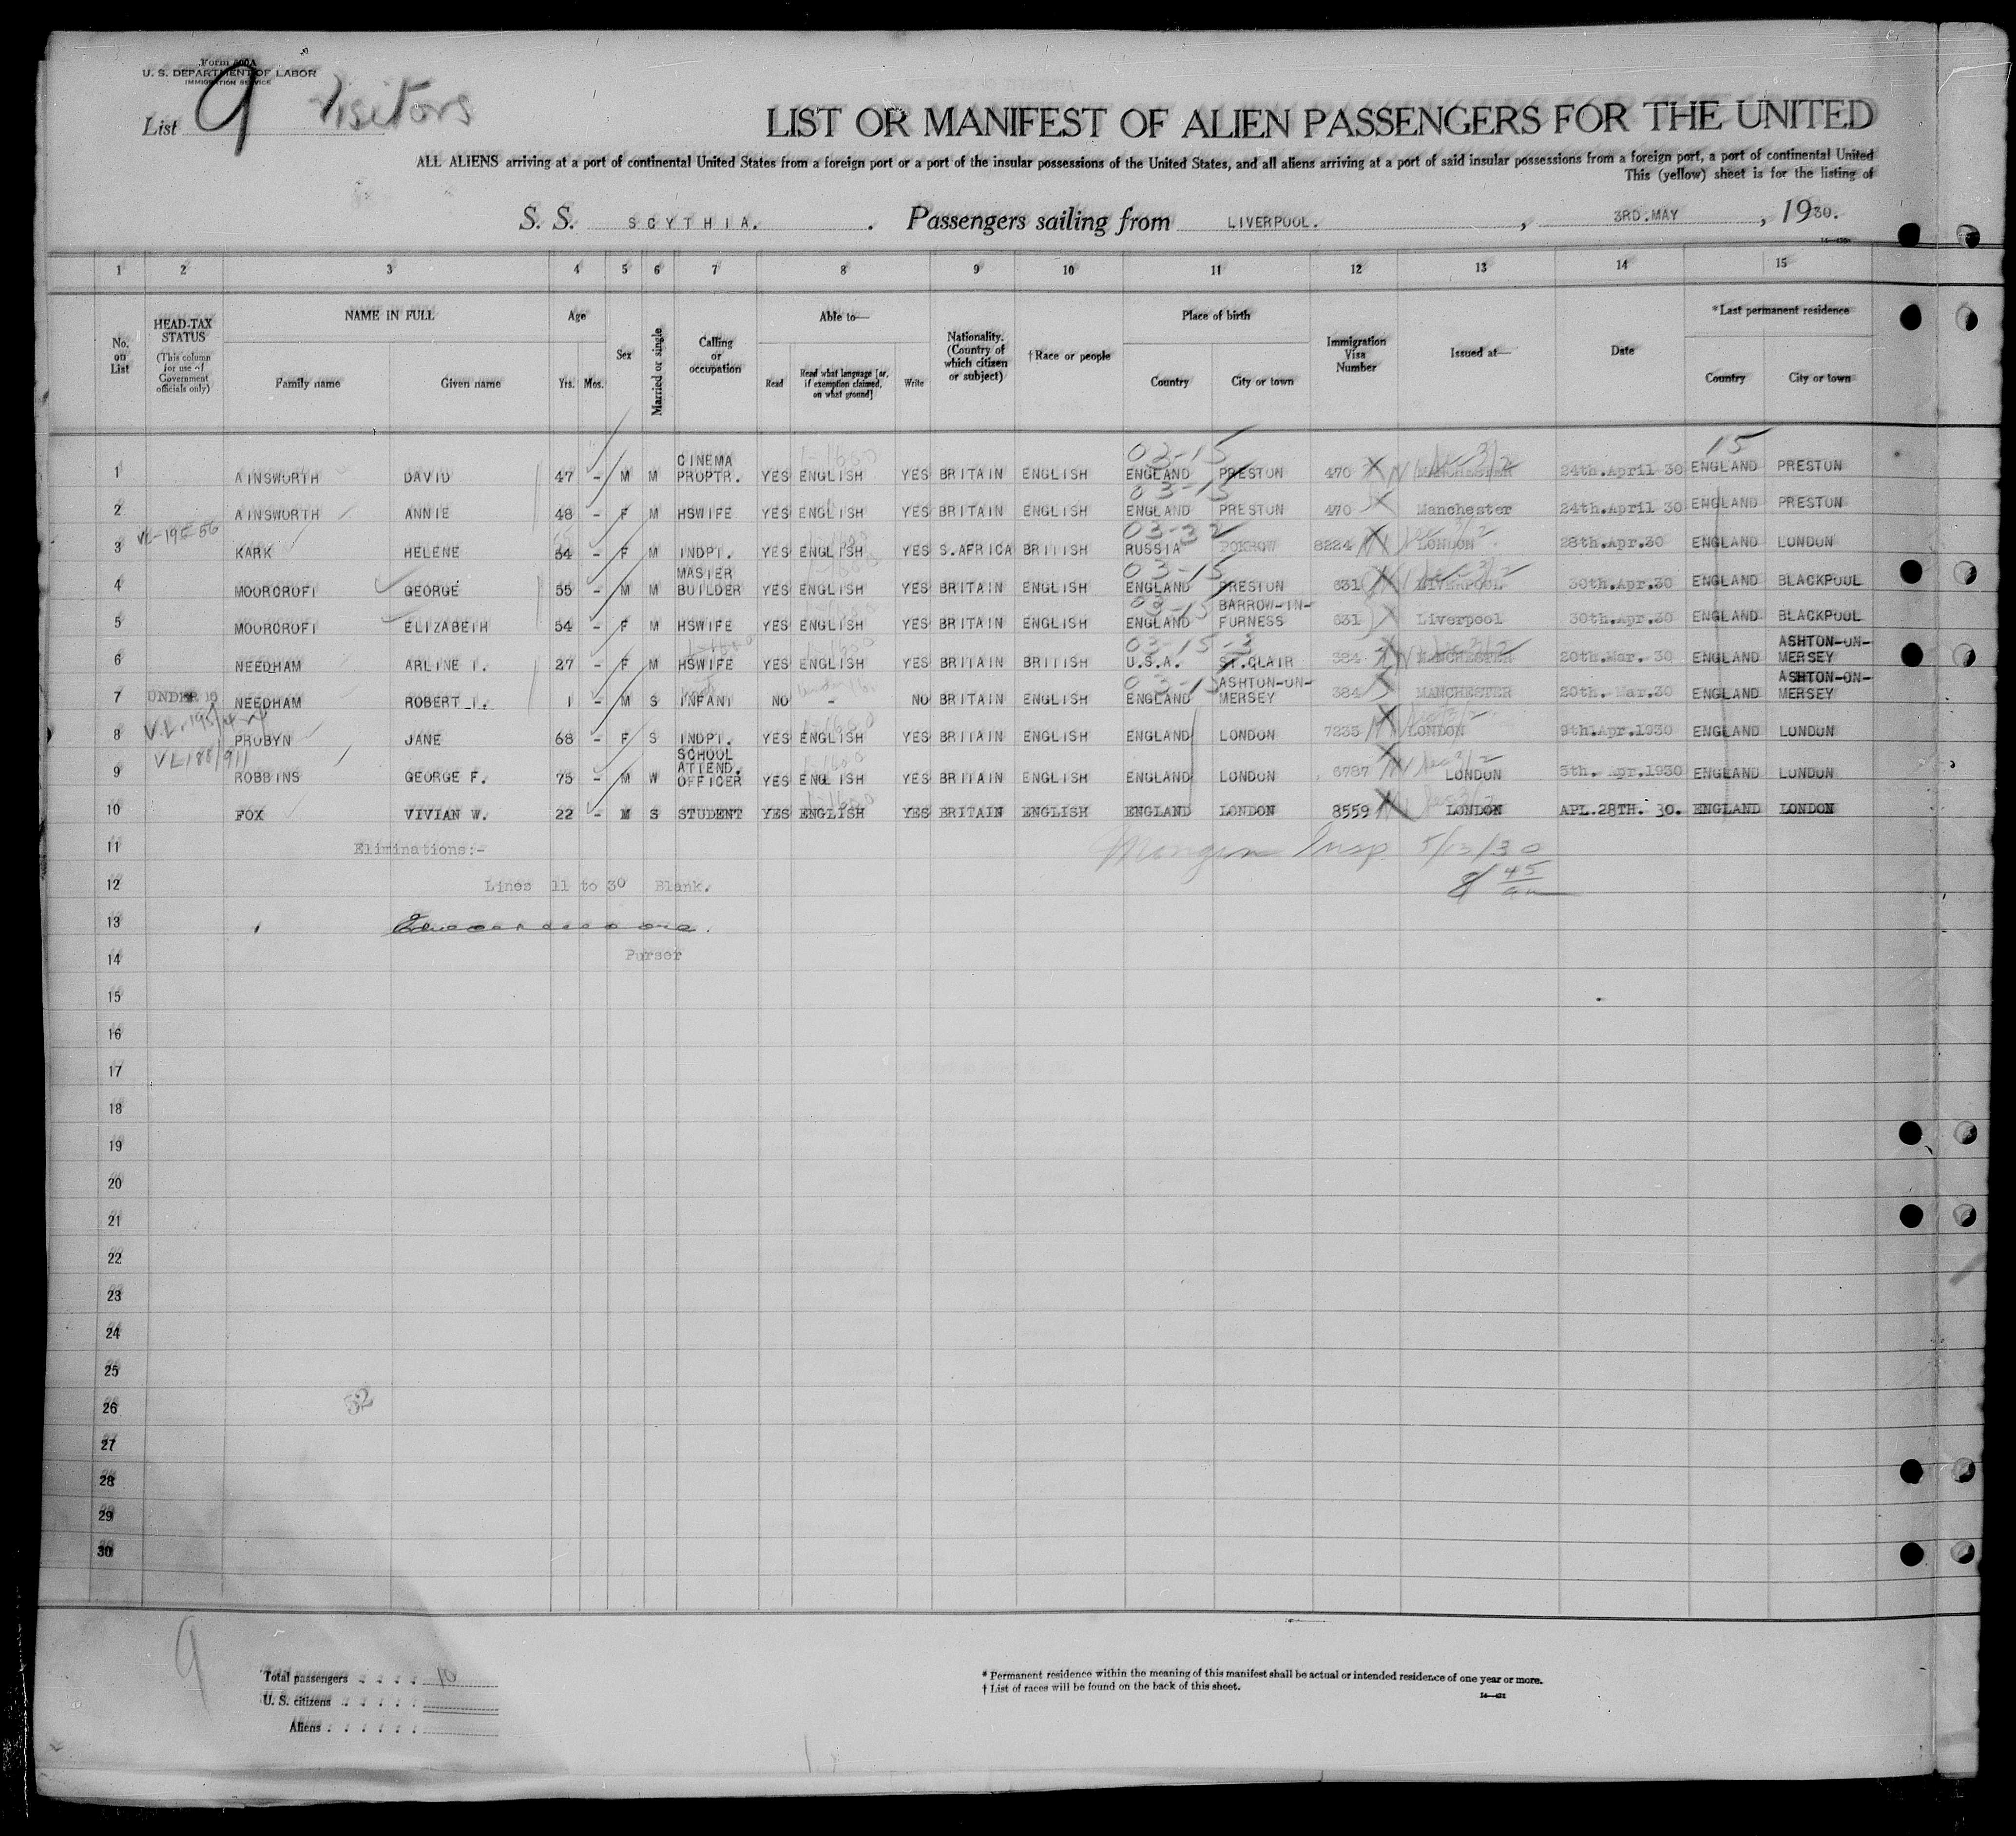 Form 600A
U. S. DEPARTMENT OF LABOR
IMMIGRATION SERVICE
List 9 Visitors
LIST OR MANIFEST OF ALIEN PASSENGERS FOR THE UNITED
ALL ALIENS arriving at a port of continental United States from a foreign port or a port of the insular possessions of the United States, and all aliens arriving at a port of said insular possessions from a foreign port, a port of continental United
This (yellow) sheet is for the listing of
S. S. SCYTHIA. Passengers sailing from LIVERPOOL. , 3RD.MAY , 1930.
1 2 3 4 5 6 7 8 9 10 11 12 13 14 15
No. on List
HEAD-TAX STATUS (This column for use of Government officials only)
NAME IN FULL Family name Given name
Age Yrs. Mos.
Sex
Married or single
Calling or occupation
Able to— Read Read what language [or, if exemption claimed, on what ground] Write
Nationality. (Country of which citizen or subject)
†Race or people
Place of birth Country City or town
Immigration Visa Number
Issued at—
Date
*Last permanent residence Country City or town
03-15 15
1 AINSWORTH DAVID 47 - M M CINEMA PROPTR. YES ENGLISH YES BRITAIN ENGLISH ENGLAND PRESTON 470 MANCHESTER 24th.April 30 ENGLAND PRESTON
03-15
2 AINSWORTH ANNIE 48 - F M HSWIFE YES ENGLISH YES BRITAIN ENGLISH ENGLAND PRESTON 470 Manchester 24th.April 30 ENGLAND PRESTON
03-32
3 KARK HELENE 54 - F M INDPT. YES ENGLISH YES S.AFRICA BRITISH RUSSIA 8224 LONDON 28th.Apr.30 ENGLAND LONDON
03-15
4 MOORCROFT GEORGE 55 - M M MASTER BUILDER YES ENGLISH YES BRITAIN ENGLISH ENGLAND PRESTON 631 LIVERPOOL 30th.Apr.30 ENGLAND BLACKPOOL
03-15
5 MOORCROFT ELIZABETH 54 - F M HSWIFE YES ENGLISH YES BRITAIN ENGLISH ENGLAND BARROW-IN-FURNESS 631 Liverpool 30th.Apr.30 ENGLAND BLACKPOOL
03-15
6 NEEDHAM ARLINE T. 27 - F M HSWIFE YES ENGLISH YES BRITAIN BRITISH U.S.A. ST.CLAIR 384 MANCHESTER 20th.Mar. 30 ENGLAND ASHTON-ON-MERSEY
03-15
7 UNDER 16 NEEDHAM ROBERT T. 1 - M S INFANT NO - NO BRITAIN ENGLISH ENGLAND ASHTON-ON-MERSEY 384 MANCHESTER 20th. Mar.30 ENGLAND ASHTON-ON-MERSEY
8 PROBYN JANE 68 - F S INDPT. YES ENGLISH YES BRITAIN ENGLISH ENGLAND LONDON 7235 LONDON 9th.Apr.1930 ENGLAND LONDON
9 ROBBINS GEORGE F. 75 - M W SCHOOL ATTEND. OFFICER YES ENGLISH YES BRITAIN ENGLISH ENGLAND LONDON 6787 LONDON 5th. Apr.1930 ENGLAND LONDON
10 FOX VIVIAN W. 22 - M S STUDENT YES ENGLISH YES BRITAIN ENGLISH ENGLAND LONDON 8559 LONDON APL.28TH. 30. ENGLAND LONDON
11 Eliminations:- Insp 5/12/30
12 Lines 11 to 30 Blank. 8 45
13
14 Purser
15
16
17
18
19
20
21
22
23
24
25
26
27
28
29
30
9
Total passengers . . . . 10
U. S. citizens . . . . .
Aliens . . . . . .
* Permanent residence within the meaning of this manifest shall be actual or intended residence of one year or more.
† List of races will be found on the back of this sheet.